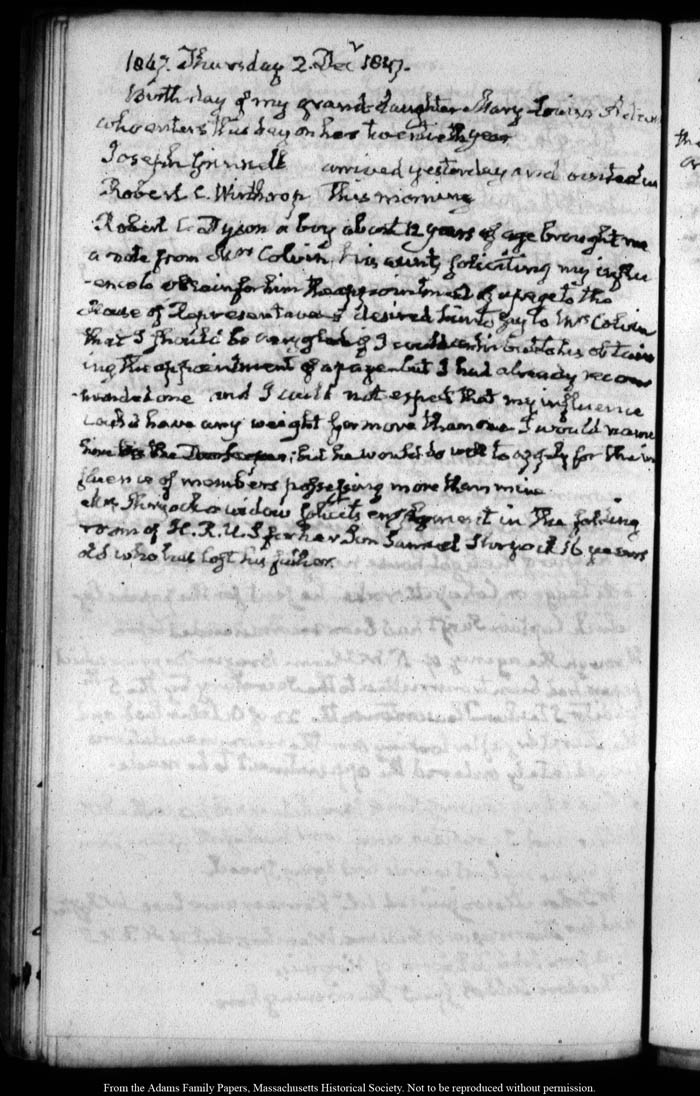 1847. Thursday 2. Decr 1847.
Birth day of my grand-daughter Mary Louisa Adams
who enters this day on her twentieth year
Joseph Grinnell arrived yesterday and visited us
Robert C. Winthrop this morning
Robert C. Tyson a boy about 12 years of age brought me
a note from Mrs Colvin, his aunt, soliciting my influ
-ence to obtain for him the appointment of a page to the
House of Representatives I desired him to say to Mrs Colvin
that I should be very glad if I could contribute to his obtain
ing the appointment of a page but I had already recom
-mended one and I could not expect that my influence
would have any weight for more than one I would name
him to the Doorkeeper; but he would do well to apply for the in
fluence of members possessing more than mine.
Mrs Shryock a widow solicits employment in the folding
room of H.R.U.S for her Son Samuel Shryock 16 years
old who has lost his father.
From the Adams Family Papers, Massachusetts Historical Society. Not to be reproduced without permission.